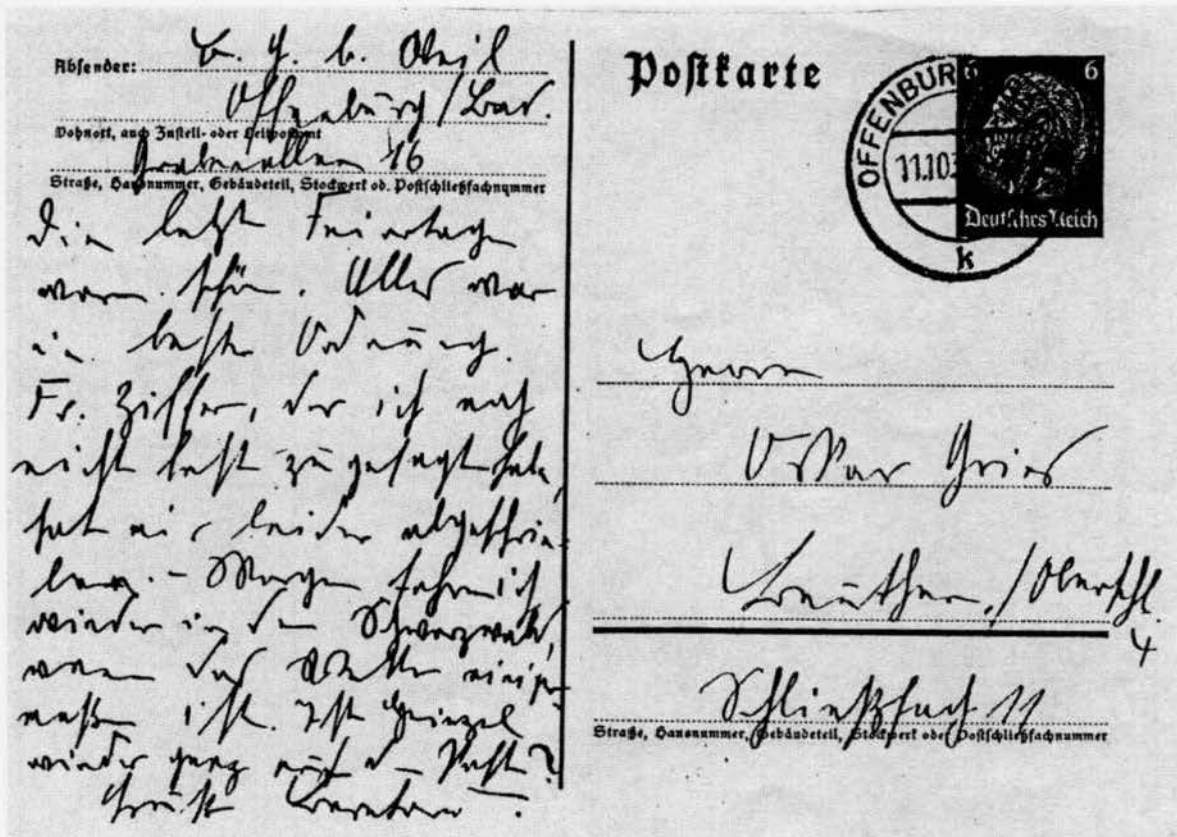 Absender: B. J. b. Weil
Offenburg/Bad.
Wohnort, auch Zustell- oder Leitpostamt
Grabenallee 16
Straße, Hausnummer, Gebäudeteil, Stockwerk od. Postschließfachnummer
Die letzt Feiertage
waren schön. Alles war
in bester Ordnung.
Fr. Ziffer, der ich noch
nicht fest zugesagt habe,
hat mir leider abgeschrie-
ben. – Morgen fahre ich
wieder in den Schwarzwald,
wenn das Wetter einiger-
maßen ist. Ist Heinzel
wieder ganz auf d. Post?
Grüßt Bertram.
Postkarte
OFFENBURG
11.10.3
k
6 6
Deutsches Reich
Herrn
Oskar Gries
Beuthen,/Oberschl.
4
Schließfach 11
Straße, Hausnummer, Gebäudeteil, Stockwerk oder Postschließfachnummer